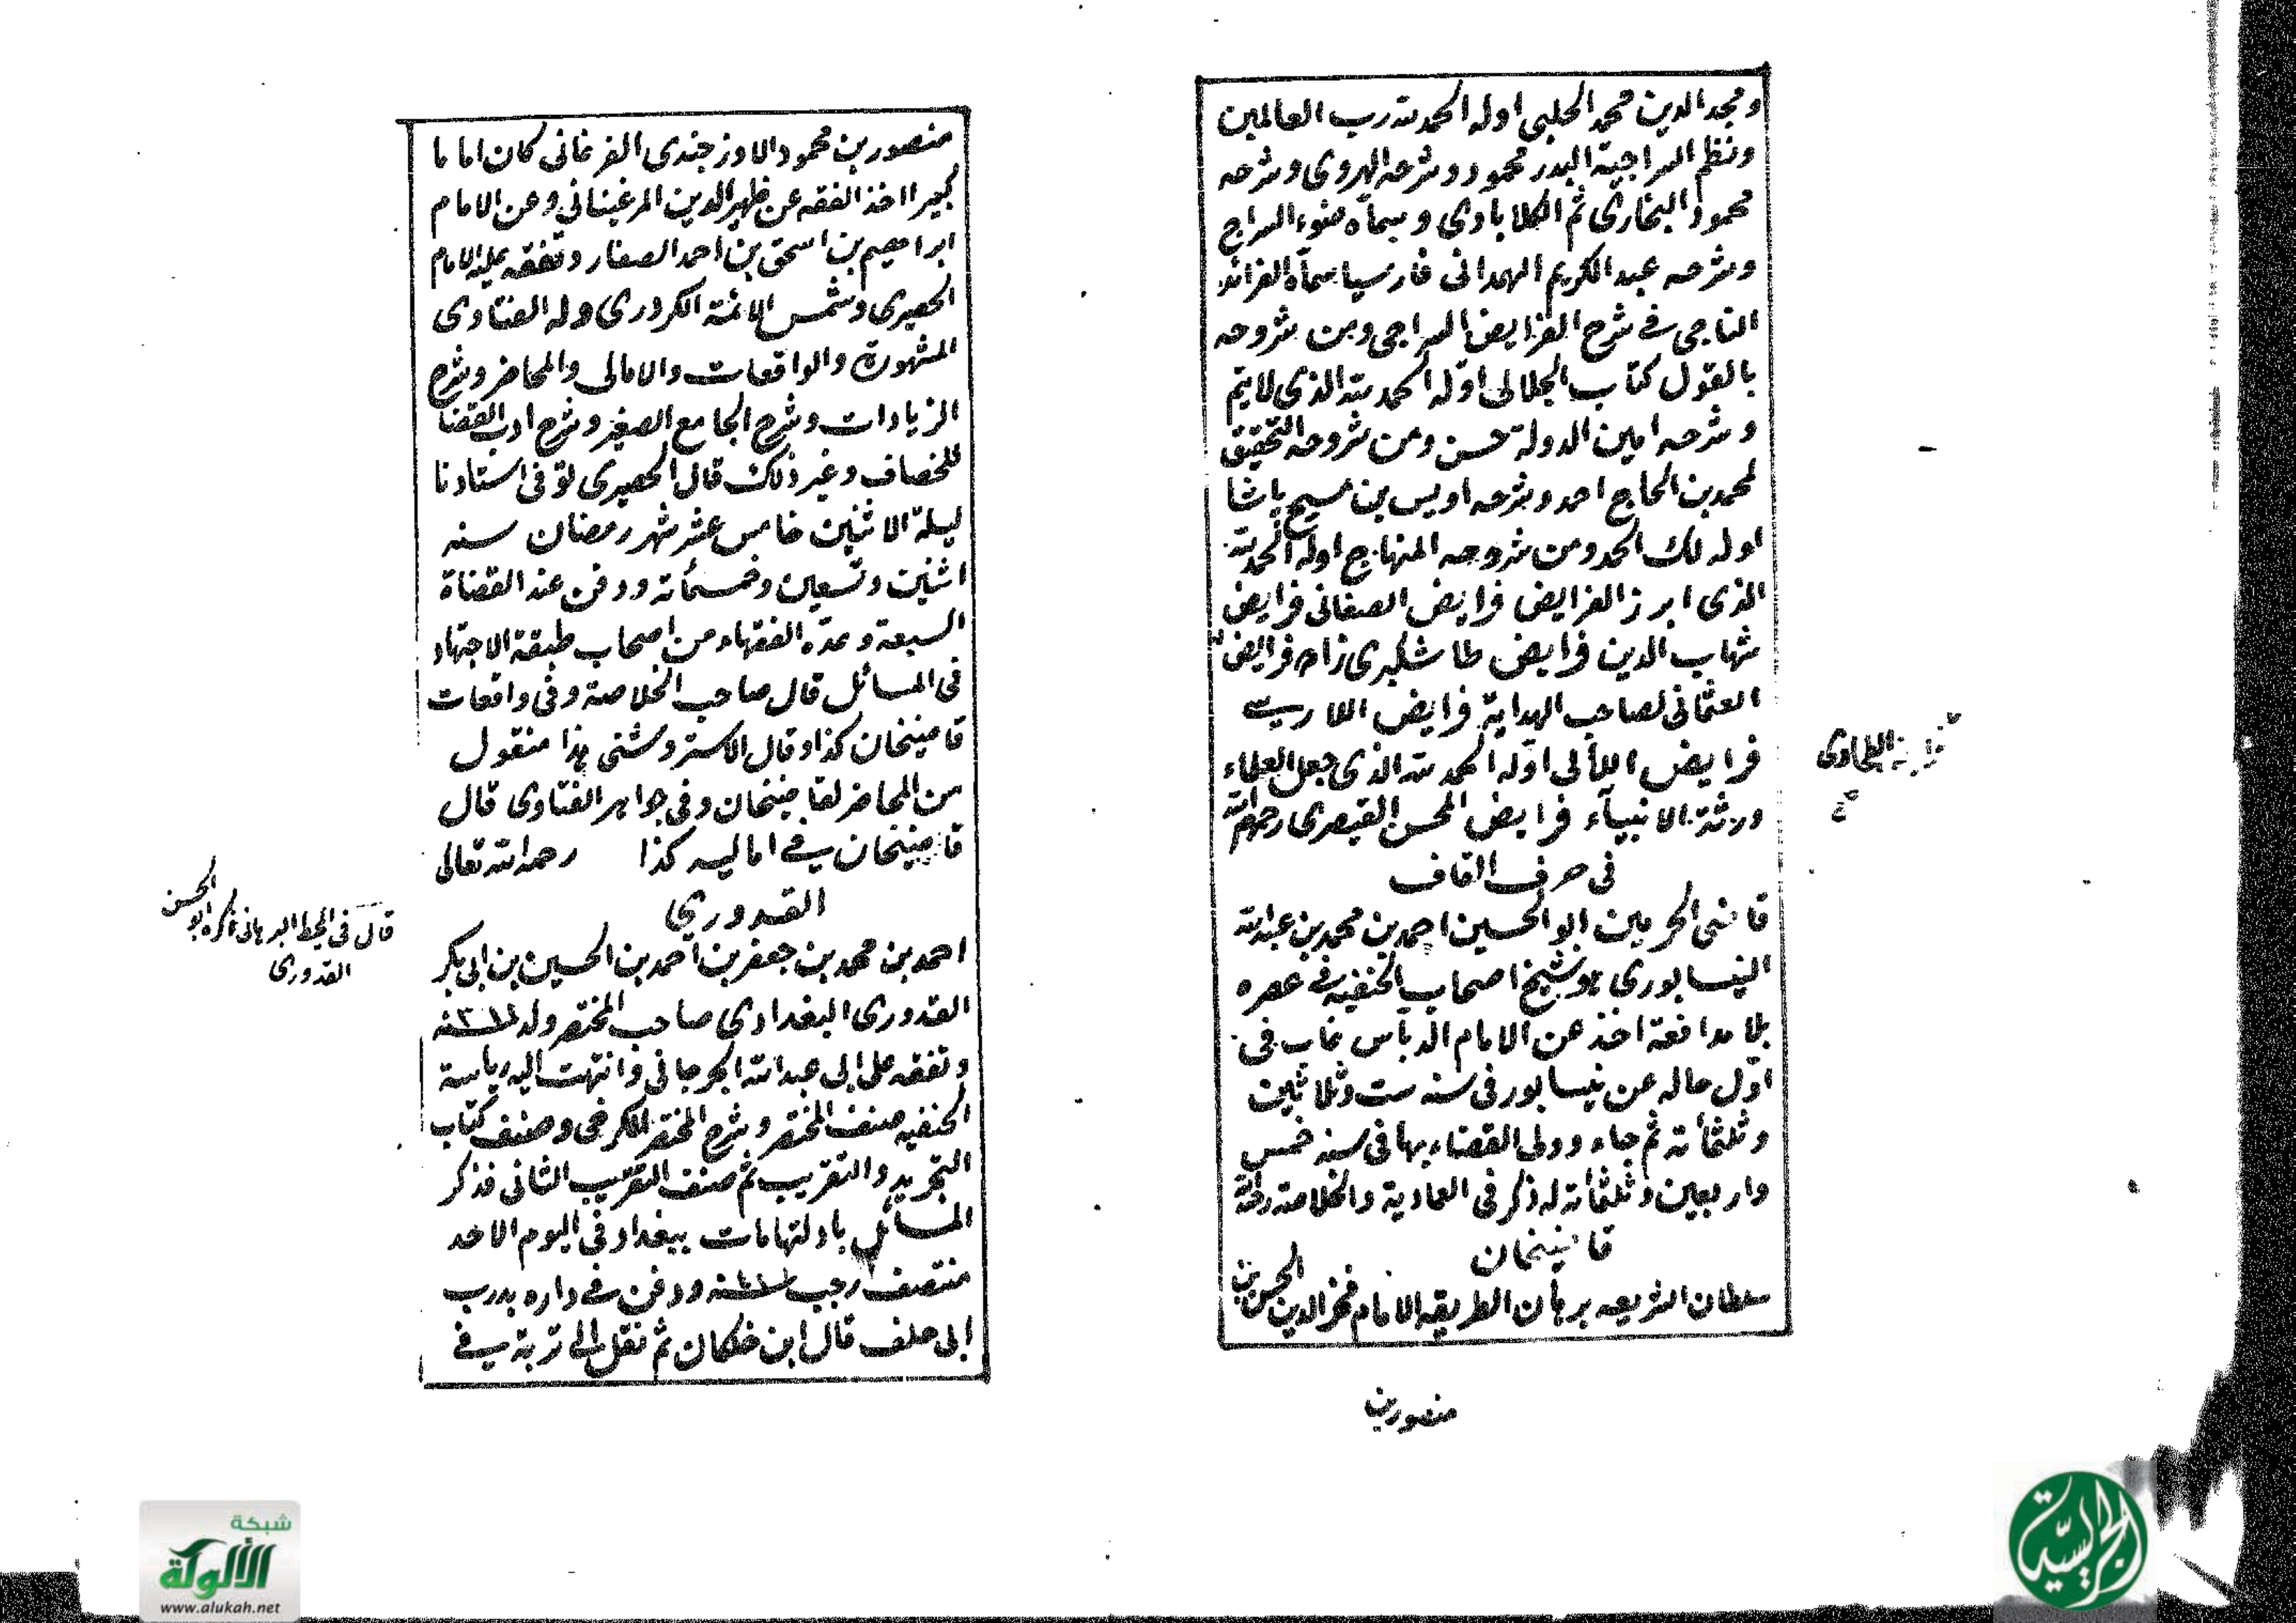 ومجد الدين محمد الحلبي اوله الحمد لله رب العالمين
ونظم السراجية البدر محمود وشرحه الهروى وشرحه
محمود البخارى ثم الكلابادى وسماه ضوء السراج
وشرحه عبد الكريم الهمدانى فارسيا سماه الفرائد
التاجى فى شرح الفرايض السراجى ومن شروحه
بالقول كتاب الجلالى اوله الحمد لله الذى لايتم
وشرحه امين الدولة حسن ومن شروحه التحقيق
لمحمد بن الحاج احمد وشرحه اويس بن مسيح پاشا
اوله لك الحمد ومن شروحه المنهاج اوله الحمد لله
الذى ابرز الفرايض فرايض الصغانى فرايض
شهاب الدين فرايض طاشكبرى زاده فرايض
العثمانى لصاحب الهداية فرايض اللارى
فرايض اللألى اوله الحمد لله الذى جعل العلماء
ورثة الانبيآء فرايض المحسن القيصرى رحمهم الله
الطحاوى
فى حرف القاف
قاضى الحرمين ابو الحسين احمد بن محمد بن عبد الله
النيسابورى هو شيخ اصحاب الحنفيه فى عصره
بلا مدافعة اخذ عن الامام الدبآس غاب فى
اول حاله عن نيسابور فى سنه ست وثلاثين
وثلثمأته ثم جاء وولى القضاء بها فى سنه خمس
واربعين وثلثمأته له ذكر فى العمادية والخلاصة رحمه الله
قاضيخان
سلطان الشريعه برهان الطريقه الامام فخر الدين الحسن بن
منصور بن
منصور بن محمود الاوزجندى الفرغانى كان اماما
كبيرا اخذ الفقه عن ظهير الدين المرغينانى وعن الامام
ابراهيم بن اسحق بن احمد الصفار وتفقه عليه الامام
الحصيرى وشمس الائمة الكردرى وله الفتاوى
المشهورة والواقعات والامالى والمحاضر وشرح
الزيادات وشرح الجامع الصغير وشرح ادب القضا
للخصاف وغير ذلك قال الحصيرى توفى استادنا
ليلة الاثنين خامس عشر شهر رمضان سنه
اثنين وتسعين وخمسمأته ودفن عند القضاة
السبعة وعده الفقهاء من اصحاب طبقة الاجتهاد
فى المسائل قال صاحب الخلاصة وفى واقعات
قاضيخان كذا وقال الاستروشنى هذا منقول
من المحاضر لقاضيخان وفى جواهر الفتاوى قال
قاضيخان فى اماليه كذا رحمه الله تعالى
القدورى
احمد بن محمد بن جعفر بن احمد بن الحسين بن ابى بكر
قال فى المحيط البرهانى ذكره ابو الحسن
القدورى
القدورى البغدادى صاحب المختصر ولد سنه
وتفقه على ابى عبد الله الجرجانى وانتهت اليه رياسة
الحنفيه صنف المختصر وشرح المختصر للكرخى وصنف كتاب
التجريد والتقريب ثم صنف التقريب الثانى فذكر
المسائل بادلتها مات ببغداد فى اليوم الاحد
منتصف رجب سنه ودفن فى داره بدرب
ابى خلف قال ابن خلكان ثم نقل الى تربة فى
شبكة
الألوكة
www.alukah.net